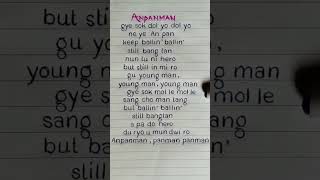 ANPANMAN
gye sok dol yo dol yo
ne ye An pan
keep ballin' ballin'
still bang tan
nun tu ni hero
but still in mi ro
gu young man,
young man, young man
gye sok mol le mol le
sang cho man tang
but ballin' ballin'
still bangtan
s pa do hero
du ryo u mun dwi ro
Anpanman, panman panman